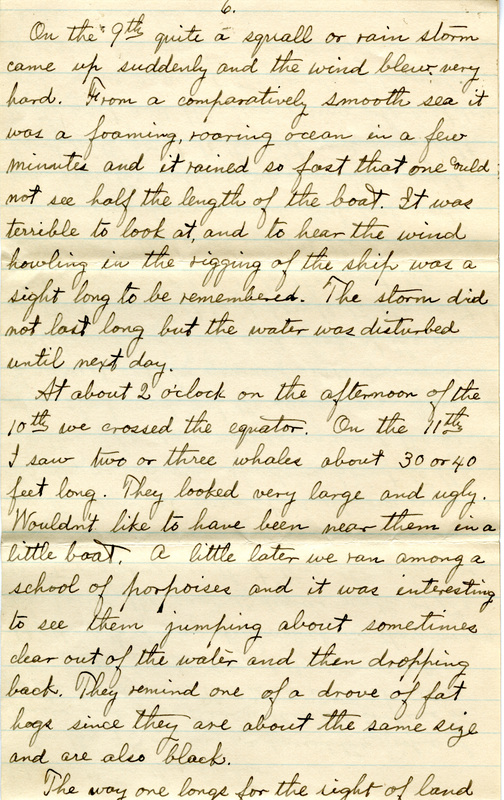 6.
On the 9th quite a squall or rain storm
came up suddenly and the wind blew very
hard. From a comparatively smooth sea it
was a foaming, roaring ocean in a few
minutes and it rained so fast that one could
not see half the length of the boat. It was
terrible to look at, and to hear the wind
howling in the rigging of the ship was a
sight long to be remembered. The storm did
not last long but the water was disturbed
until next day.
At about 2 o'clock on the afternoon of the
10th we crossed the equator. On the 11th
I saw two or three whales about 30 or 40
feet long. They looked very large and ugly.
Wouldn't like to have been near them in a
little boat. A little later we ran among a
school of porpoises and it was interesting
to see them jumping about sometimes
clear out of the water and then dropping
back. They remind one of a drove of fat
hogs since they are about the same size
and are also black.
The way one longs for the sight of land